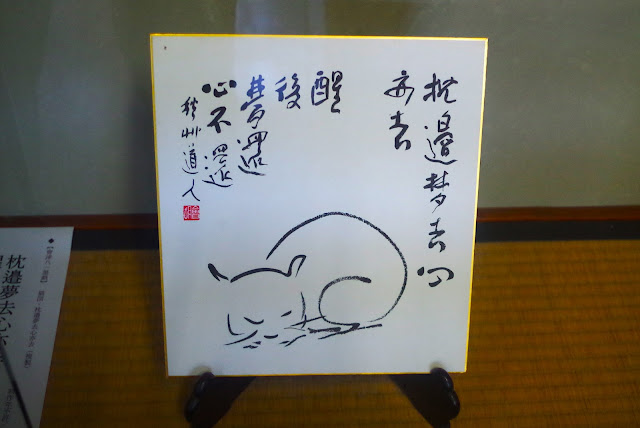 枕邊夢去心
亦去
醒
後
夢還
心不還
秋艸道人
枕邉夢去心